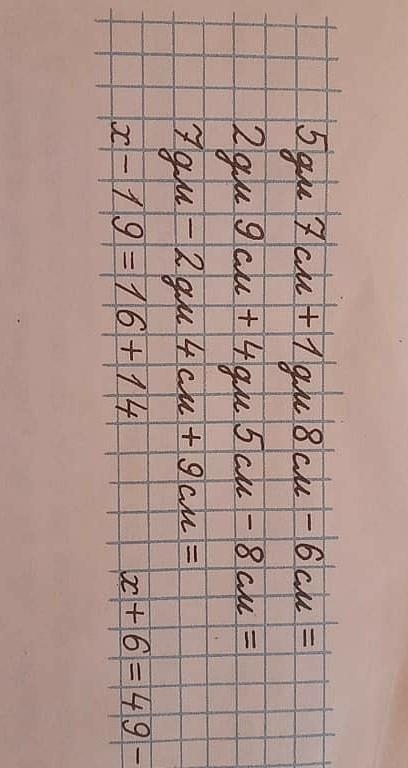 5дм 7см + 1дм 8см - 6см =
2дм 9см + 4дм 5см - 8см =
7дм - 2дм 4см + 9см =
х - 19 = 16 + 14 х + 6 = 49 -